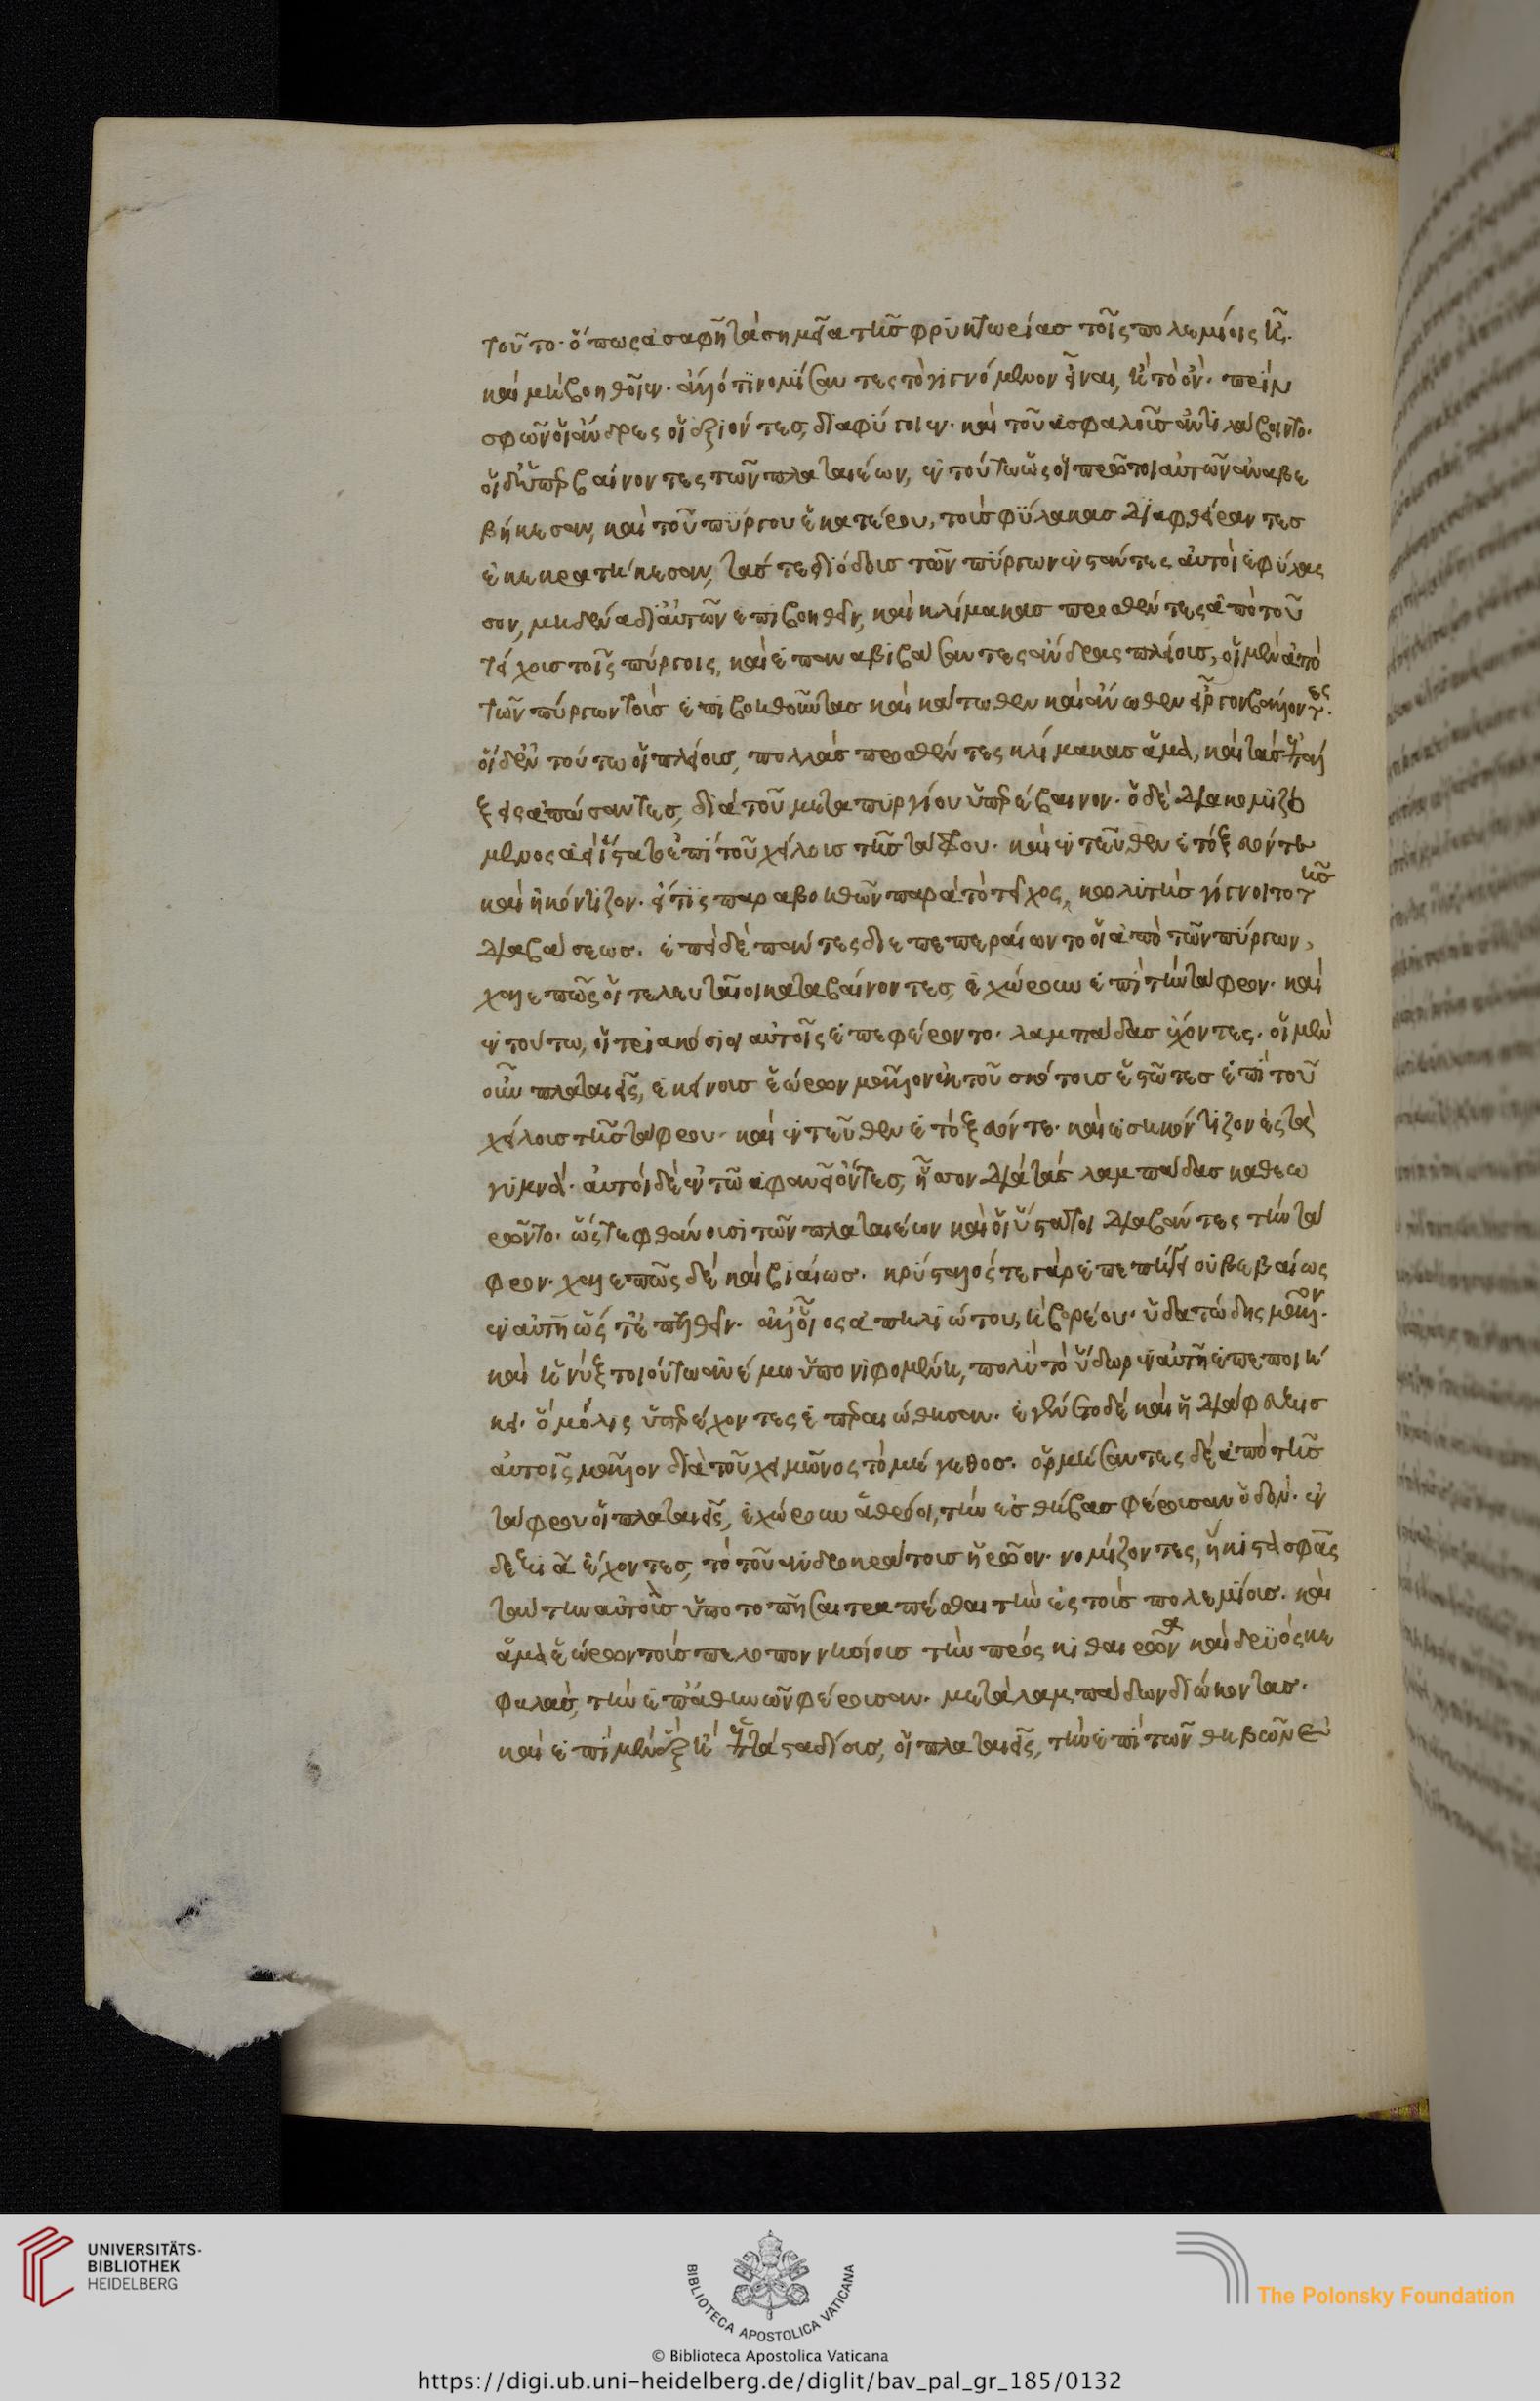 τοῦτο· ὅπως ἀσαφῆ τὰ σημεῖα τῆς φρυκτωρίας τοῖς πολεμίοις ᾖ.
καὶ μὴ βοηθοῖεν· ἄλλό τι νομίσαντες τὸ γιγνόμενον εἶναι, ἢ τὸ ὄν· πρὶν
σφῶν οἱ ἄνδρες οἱ ἐξιόντες, διαφύγοιεν· καὶ τοῦ ἀσφαλοῦς ἀντιλάβοιντο.
οἱ δ' ὑπερβαίνοντες τῶν πλαταιέων, ἐν τούτω ὡς οἱ πρῶτοι αὐτῶν ἀναβε
βήκεσαν, καὶ τοῦ πύργου ἑκατέρου, τοὺς φύλακας διαφθείραντες
ἐκεκρατήκεσαν, τάς τε διόδους τῶν πύργων ἐνστάντες αὐτοὶ ἐφύλασ
σον, μηδένα δι' αὐτῶν ἐπιβοηθεῖν, καὶ κλίμακας προσθέντες ἀπὸ τοῦ
τείχους τοῖς πύργοις, καὶ ἐπαναβιβάσαντες ἄνδρας πλείους, οἱ μὲν ἀπὸ
τῶν πύργων τοὺς ἐπιβοηθοῦντας καὶ κάτωθεν καὶ ἄνωθεν εἶργον βάλλοντες.
οἱ δ' ἐν τούτω οἱ πλείους, πολλὰς προσθέντες κλίμακας ἅμα, καὶ τὰς ἐπάλ
ξεις ἀπώσαντες, διὰ τοῦ μεταπυργίου ὑπερέβαινον. ὁ δὲ διακομιζό
μενος ἀεὶ ἵστατο ἐπὶ τοῦ χείλους τῆς τάφρου. καὶ ἐντεῦθεν ἐτόξευόν τε
καὶ ἠκόντιζον. εἴ τις παραβοηθῶν παρὰ τὸ τεῖχος, κωλυτὴς γίγνοιτο τῆς
διαβάσεως. ἐπεὶ δὲ πάντες διεπεπεραίωντο οἱ ἀπὸ τῶν πύργων,
χαλεπῶς οἱ τελευταῖοι καταβαίνοντες, ἐχώρουν ἐπὶ τὴν τάφρον. καὶ
ἐν τούτω, οἱ τριακόσιοι αὐτοῖς ἐπεφέροντο. λαμπάδας ἔχοντες. οἱ μὲν
οὖν πλαταιεῖς, ἐκείνους ἑώρων μᾶλλον ἐκ τοῦ σκότους ἑστῶτες ἐπὶ τοῦ
χείλους τῆς τάφρου. καὶ ἐντεῦθεν ἐτόξευόν τε. καὶ ἐσηκόντιζον ἐς τὰ
γυμνά. αὐτοὶ δὲ ἐν τῶ ἀφανεῖ ὄντες, ἧσσον διὰ τὰς λαμπάδας καθεω
ρῶντο. ὥστε φθάνουσι τῶν πλαταιέων καὶ οἱ ὕστατοι διαβάντες τὴν τά
φρον. χαλεπῶς δὲ καὶ βιαίως. κρύσταλλός τε γὰρ ἐπεπήγει οὐ βεβαίως
ἐν αὐτῆ ὥστ' ἐπελθεῖν. ἀλλ' οἷος ἀπηλιώτου, ἢ βορέου. ὑδατώδης μᾶλλον.
καὶ ἡ νὺξ τοιούτω ἀνέμω ὑπονιφομένη, πολὺ τὸ ὕδωρ ἐν αὐτῆ ἐπεποιή
κει. ὃ μόλις ὑπερέχοντες ἐπεραιώθησαν. ἐγένετο δὲ καὶ ἡ διάφευξις
αὐτοῖς μᾶλλον διὰ τοῦ χειμῶνος τὸ μέγεθος. ὁρμήσαντες δὲ ἀπὸ τῆς
τάφρου οἱ πλαταιεῖς, ἐχώρουν ἁθρόοι, τὴν ἐς θήβας φέρουσαν ὁδόν. ἐν
δεξιᾶ ἔχοντες, τὸ τοῦ ἀνδροκράτους ἡρῶον. νομίζοντες, ἥκιστα σφᾶς
ταύτην αὐτοὺς ὑποτοπῆσαι τραπέσθαι τὴν ἐς τοὺς πολεμίους. καὶ
ἅμα ἑώρων τοὺς πελοποννησίους τὴν πρὸς κιθαιρῶνα καὶ δρυὸς κε
φαλάς, τὴν ἐπ' ἀθηνῶν φέρουσαν. μετὰ λαμπάδων διώκοντας.
καὶ ἐπὶ μὲν ἓξ ἢ ἑπτὰ σταδίους, οἱ πλαταιεῖς, τὴν ἐπὶ τῶν θηβῶν ἐ
UNIVERSITÄTS-
BIBLIOTHEK
HEIDELBERG
BIBLIOTECA APOSTOLICA VATICANA
The Polonsky Foundation
© Biblioteca Apostolica Vaticana
https://digi.ub.uni-heidelberg.de/diglit/bav_pal_gr_185/0132